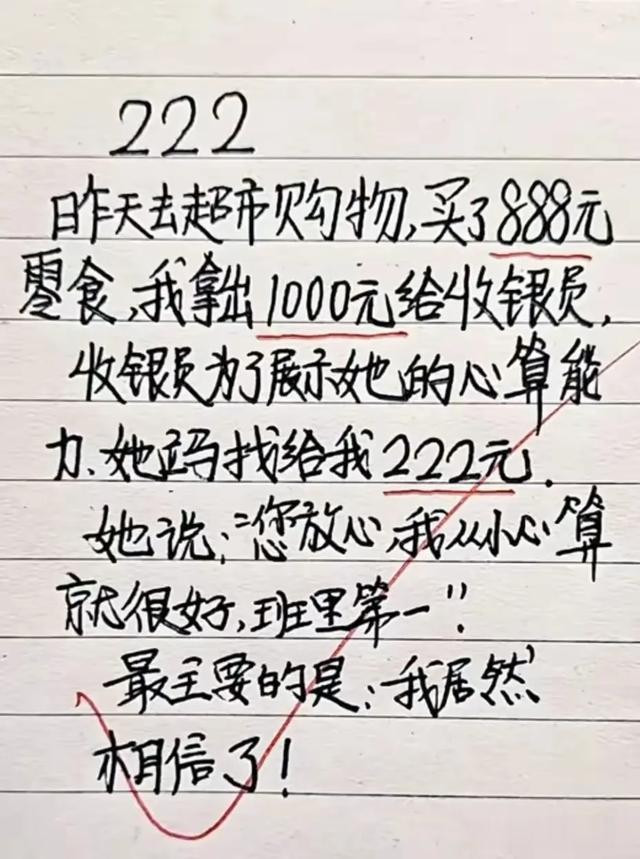 222
昨天去超市购物,买了888元
零食,我拿出1000元给收银员,
收银员为了展示她的心算能
力、她码找给我222元.
她说:“您放心,我从小心算
就很好,班里第一”!
最主要的是:我居然
相信了!